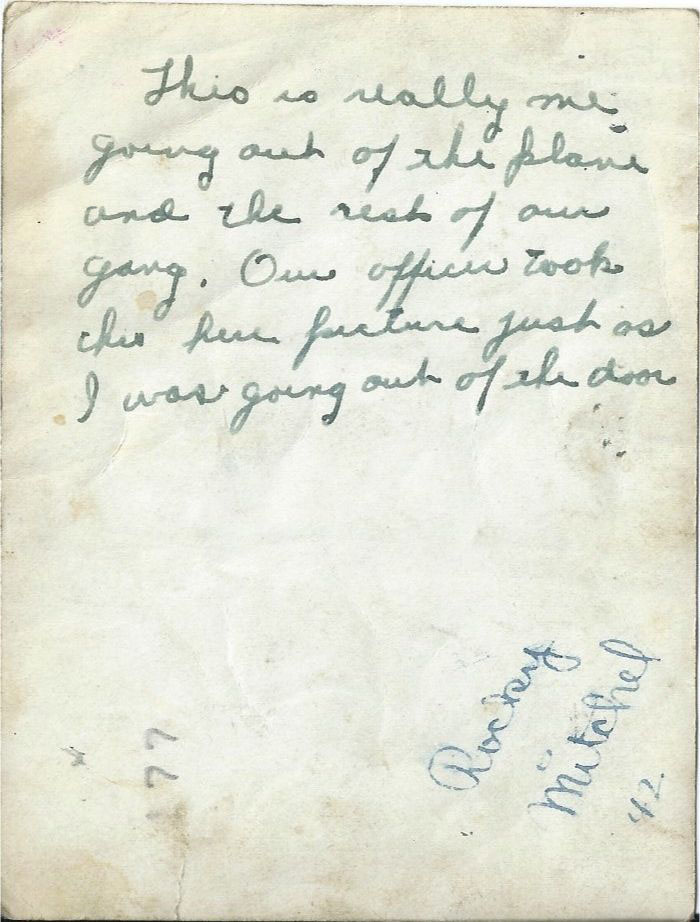 This is really me
going out of the plane
and the rest of our
gang. Our officer took
this here picture just as
I was going out of the door
Rocky
Mitchel
42.
177